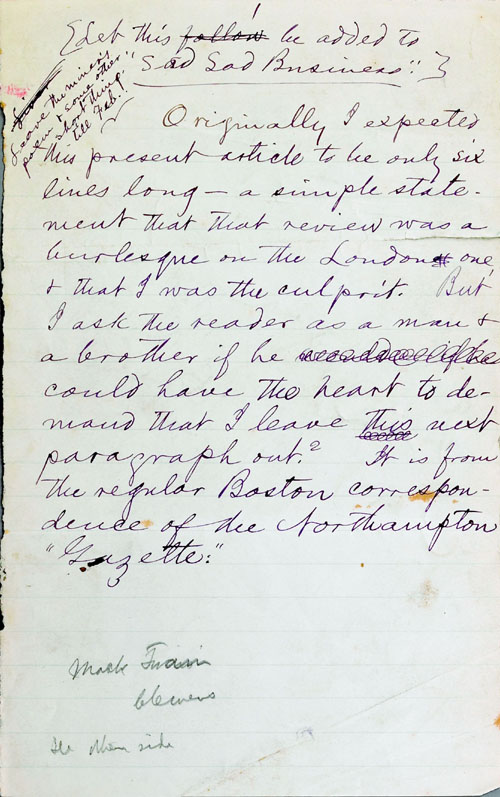 [Let this follow be added to
Sad Sad Business".]
Leave the miner's
poem & some other
short things
till Feb.
Originally I expected
this present article to be only six
lines long — a simple state-
ment that that review was a
burlesque on the London one
& that I was the culprit. But
I ask the reader as a man &
a brother if he
could have the heart to de-
mand that I leave this next
paragraph out.? It is from
the regular Boston correspon-
dence of the Northampton
"Gazette:"
Mark Twain
Clemens
See other side